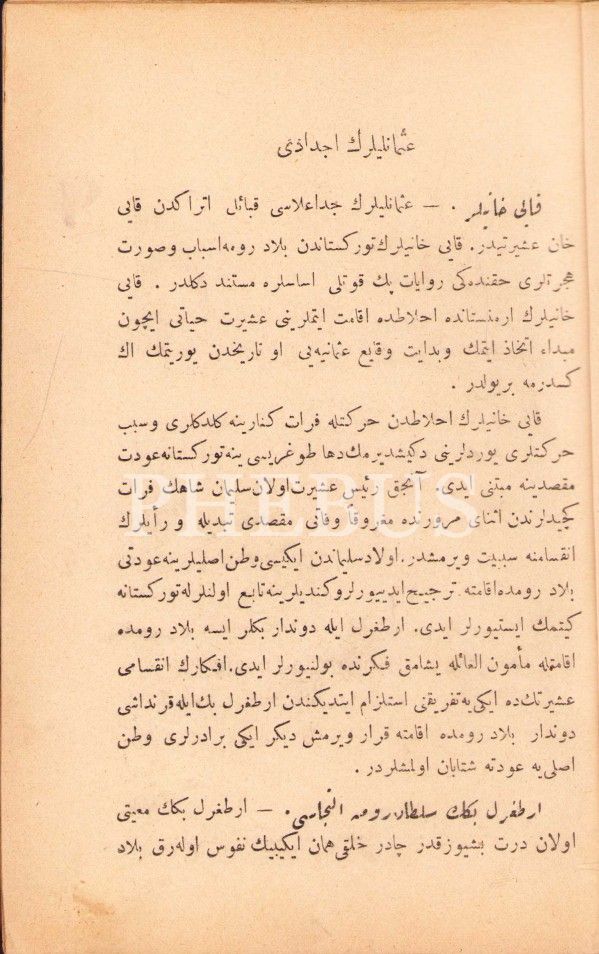 عثمانلیلرك اجدادی
قایی خانیلر . — عثمانلیلرك جداعلاسی قبائل اتراكدن قایی
خان عشیرتیدر. قایی خانیلرك تورکستاندن بلاد رومه اسباب وصورت
هجرتلری حقنده‌کی روایات پك قوتلی اساسلره مستند دکلدر . قایی
خانیلرك ارمنستانده احلاطده اقامت ایتملرینی عشیرت حیاتی ایچون
مبداء اتخاذ ایتمك وبدایت وقایع عثمانیه‌یی او تاریخدن یوریتمك اك
کسدرمه بریولدر .
قایی خانیلرك احلاطدن حرکتله فرات کنارینه کلدکلری وسبب
حرکتلری یوردلرینی دکیشدیرمك دها طوغریسی ینه تورکستانه عودت
مقصدینه مبتنی ایدی. آنجق رئیس عشیرت اولان سلیمان شاهك فرات
کچیدلرندن اثنای مرورنده مغروقاً وفاتی مقصدی تبدیله و رأیلرك
انقسامنه سببیت ویرمشدر. اولاد سلیماندن ایکیسی وطن اصلیلرینه عودتی
بلاد رومده اقامته ترجیح ایدییورلر وکندیلرینه تابع اولنلرله تورکستانه
کیتمك ایستیورلر ایدی. ارطغرل ایله دوندار بکلر ایسه بلاد رومده
اقامتله مأمون الغائله یشامق فکرنده بولنیورلر ایدی. افکارك انقسامی
عشیرتك‌ده ایکی‌یه تفریقنی استلزام ایتدیکندن ارطغرل بك ایله قرنداشی
دوندار بلاد رومده اقامته قرار ویرمش دیکر ایکی برادرلری وطن
اصلی‌یه عودته شتابان اولمشلردر.
ارطغرل بكك سلطان رومه التجاسی. — ارطغرل بكك معیتی
اولان درت بشیوز قدر چادر خلقی همان ایکیبیك نفوس اوله‌رق بلاد
PHEBUS